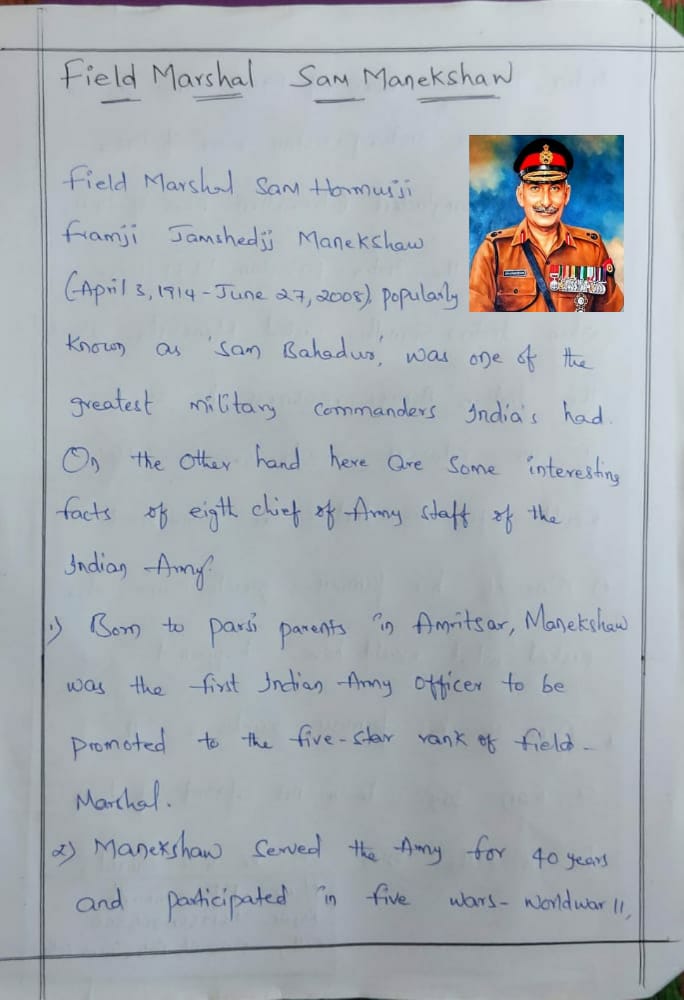 Field Marshal Sam Manekshaw
Field Marshal Sam Hormusji
framji Jamshedji Manekshaw
(April 3, 1914 - June 27, 2008), popularly
known as 'Sam Bahadur', was one of the
greatest military commanders India's had.
On the other hand here are some interesting
facts of eigth chief of Army staff of the
Indian Army.
1) Born to parsi parents in Amritsar, Manekshaw
was the first Indian Army officer to be
promoted to the five-star rank of field-
Marshal.
2) Manekshaw served the Army for 40 years
and participated in five wars - world war II,